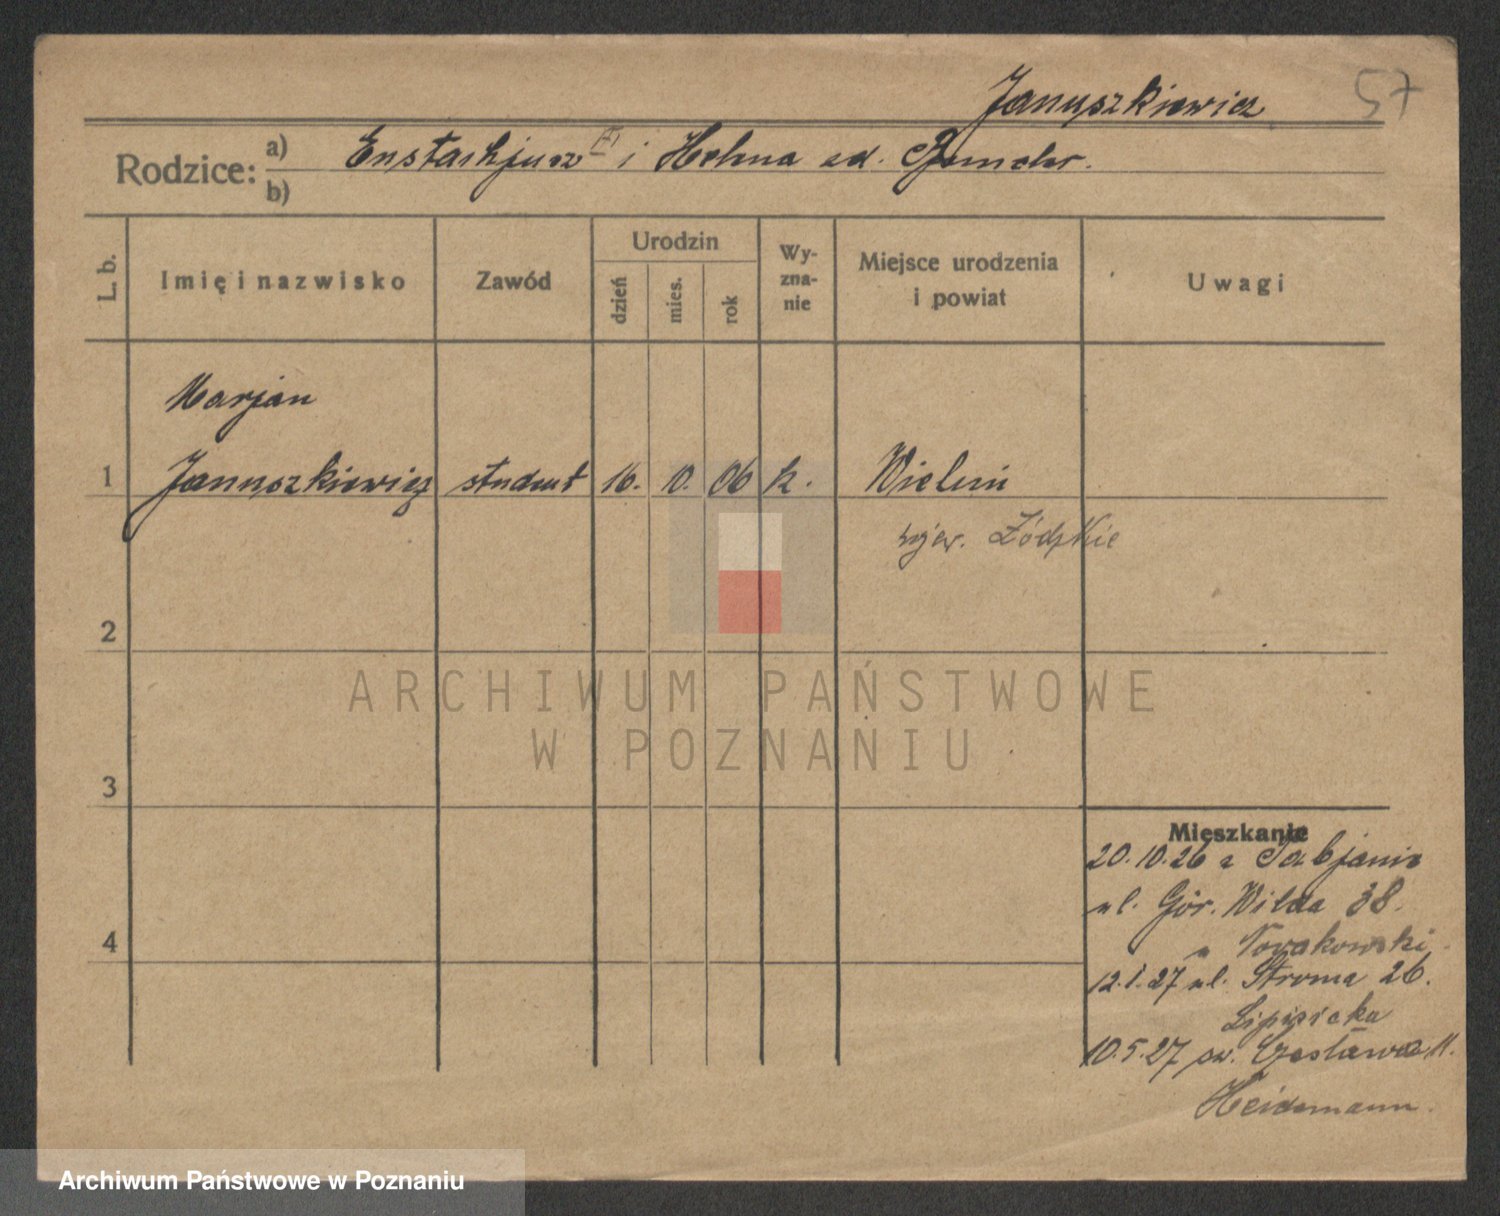 Januszkiewicz 57
Rodzice: a) Eustachjusz i Helena zd.
b)
L. b.
Imię i nazwisko
Zawód
Urodzin
dzień
mies.
rok
Wy-
zna-
nie
Miejsce urodzenia
i powiat
Uwagi
Marjan
1 Januszkiewicz student 16. 10. 06 k. Wieluń
wjew. Łódzkie
2
3
4
Mieszkanie
20.10.26 z Pabjanic
ul. Gór. Wilda 38.
u Nowakowski
12.1.27 ul. Stroma 26.
10.5.27 św. Czesława 11.
Heidemann.
ARCHIWUM PAŃSTWOWE
W POZNANIU
Archiwum Państwowe w Poznaniu